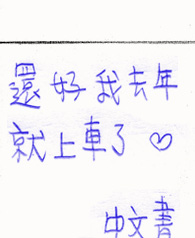 還好我去年
就上車了♡
中文書